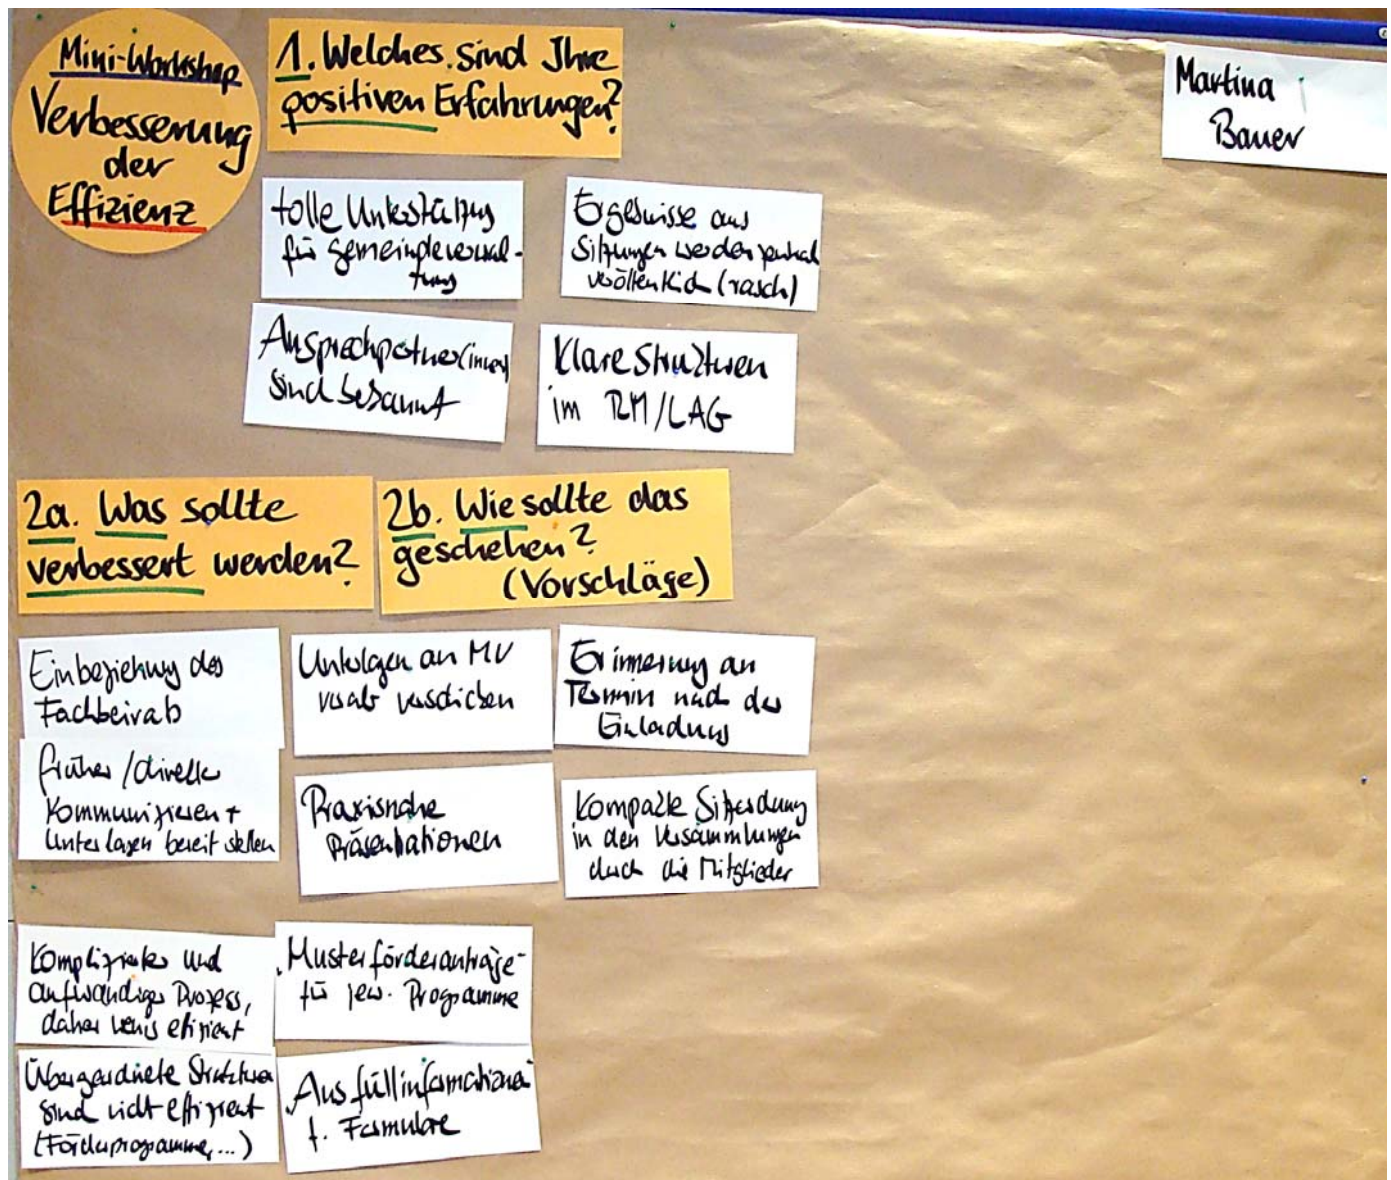 Mini-Workshop
Verbesserung
der
Effizienz
1. Welches sind Ihre
positiven Erfahrungen?
Martina
Bauer
tolle Unterstützung
für Gemeindeverwal-
tung
Ergebnisse aus
Sitzungen werden
veröffentlich (rasch)
Ansprechpartner(innen)
sind bekannt
Klare Strukturen
im RM/LAG
2a. Was sollte
verbessert werden?
2b. Wie sollte das
geschehen?
(Vorschläge)
Einbeziehung des
Fachbeirats
früher/direkte
Kommunizieren +
Unterlagen bereit stellen
Unterlagen an MV
vorab verschicken
Erinnerung an
Termin nach der
Einladung
Praxisnahe
Präsentationen
Kompakte Sitzordnung
in den Versammlungen
durch die Mitglieder
Komplizierter und
aufwändiger Prozess,
daher wenig effizient
"Musterförderanträge"
für jew. Programme
Übergeordnete Strukturen
sind nicht effizient
(Förderprogramme,...)
"Ausfüllinformationen"
f. Formulare